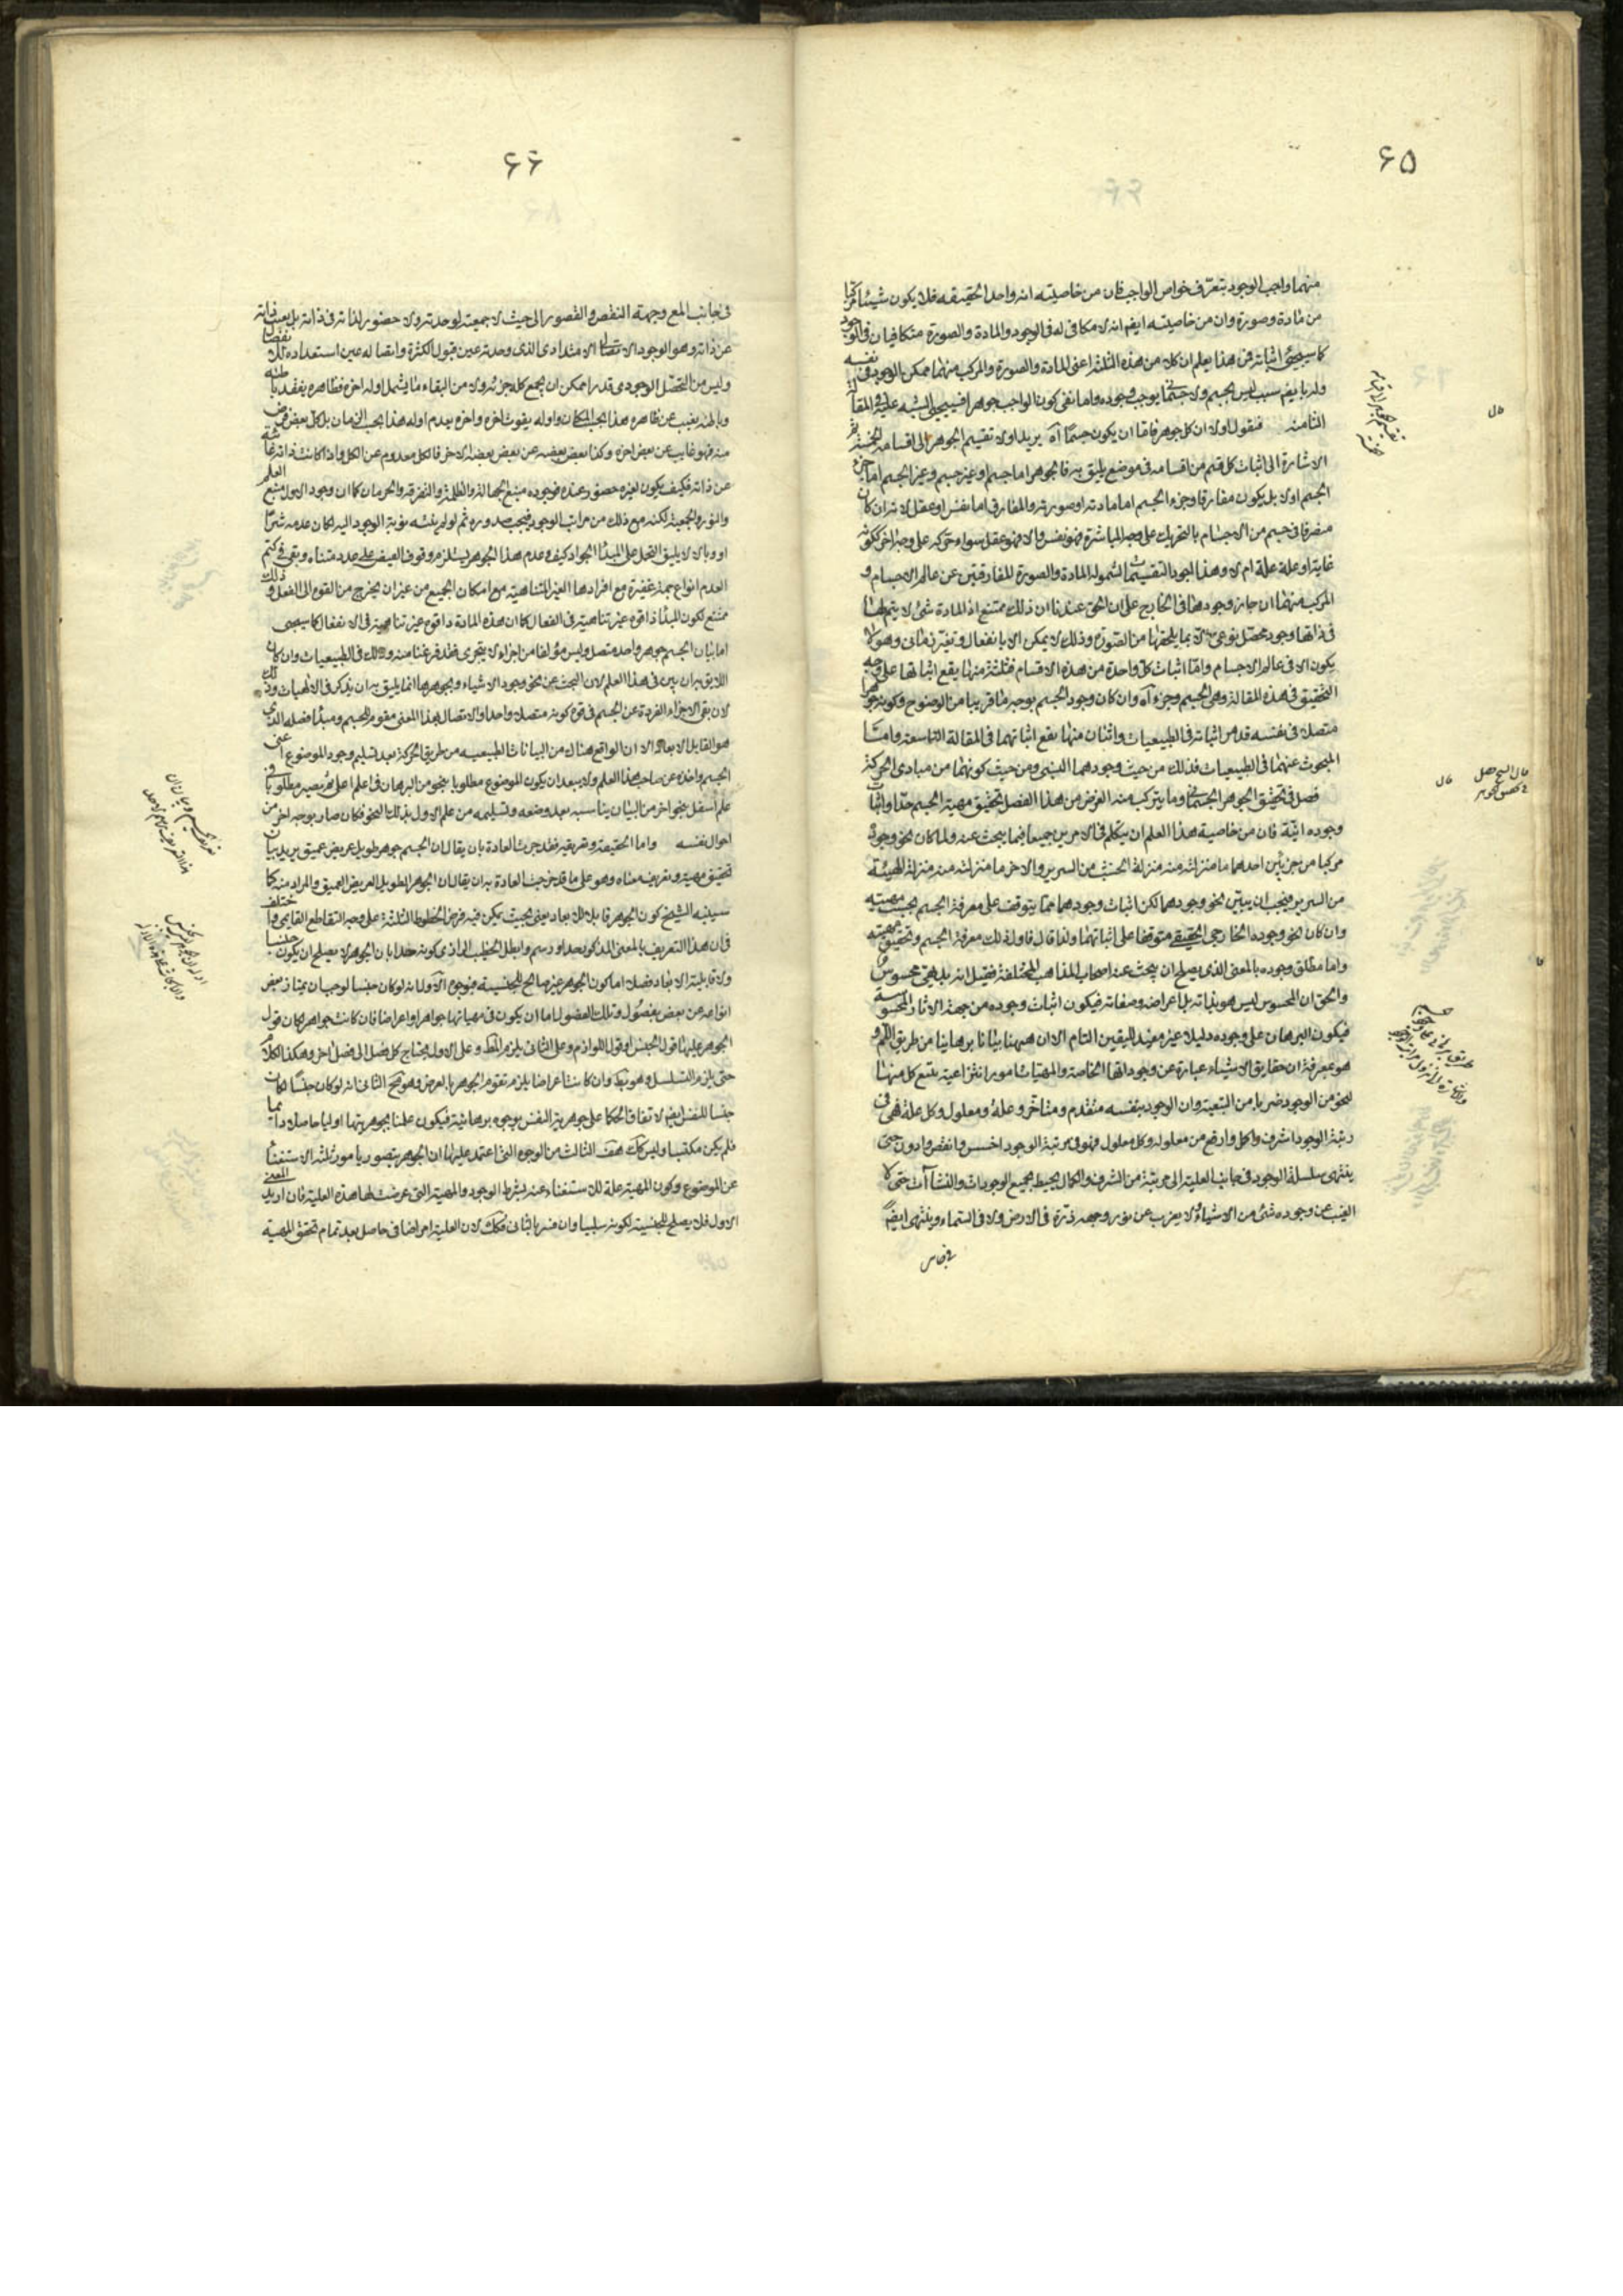 ٦٥
منهما واجب الوجود بتعرف خواص الواجب فان من خاصيته انه واحد الحقيقه فلا يكون شيئا مركبا
من مادة وصورة وان من خاصيته ايضا انه لا مكافى له فى الوجود والمادة والصورة متكافيان فى الوجود
كما سيجئ اثباته فمن هذا يعلم ان كلا من هذه الثلثة اعنى المادة والصورة والمركب منهما ممكن الوجود فى نفسه
وله بايضم سبب ليس بجسم ولا جسمانى يوجب وجوده واما نفى كون الواجب جوهرا فسيجئ التنبيه عليه فى المقالة
الثامنة فنقول اولا ان كل جوهر فاما ان يكون جسما آه يريد اولا تقسيم الجوهر الى اقسامه الخمسة ثم
الاشارة الى اثبات كل قسم من اقسامه فى موضع يليق به فالجوهر اما جسم او غير جسم وغير الجسم اما جزء
الجسم او لا بل يكون مفارقا وجزء الجسم اما مادته او صورته والمفارق اما نفس او عقل لانه ان كان
متصرفا فى جسم من الاجسام بالتحريك على وجه المباشرة فهو نفس والا فهو عقل سواء حركه على وجه اخر ككونه
غاية او علة علة ام لا وهذا اجود التقسيمات لشموله المادة والصورة المفارقتين عن عالم الاجسام و
المركب منهما ان جاز وجودهما فى الخارج على ان الحق عندنا ان ذلك ممتنع اذ المادة شئ لا يتم لها
فى ذاتها وجود محصل نوعى الا بما يلحقها من الصورة وذلك لا يمكن الا بانفعال وتغير زمانى وهو لا
يكون الا فى عالم الاجسام واما اثبات كل واحدة من هذه الاقسام فثلثة منها يقع اثباتها على وجه
التحقيق فى هذه المقالة وهى الجسم وجزءاه وان كان وجود الجسم بوجه ما قريبا من الوضوح وكونه جوهرا
متصلا فى نفسه قد مر اثباته فى الطبيعيات واثنان منها يقع اثباتهما فى المقالة التاسعة واما
المبحوث عنهما فى الطبيعيات فذلك من حيث وجودهما النسبى ومن حيث كونهما من مبادى الحركة
فصل فى تحقيق الجوهر الجسمانى وما يتركب منه الغرض من هذا الفصل تحقيق مهية الجسم حدا واثبات
وجوده انية فان من خاصية هذا العلم ان يتكلم فى الامرين جميعا فيما يبحث عنه ولما كان نحو وجوده
مركبا من جزئين احدهما ما منزلته منه منزلة الخشب من السرير والاخر ما منزلته منه منزلة الهيئة
من السرير فيجب ان يبين نحو وجودهما لكن اثبات وجودهما مما يتوقف على معرفة الجسم بحسب مهيته
وان كان نحو وجوده الخارجى الحقيقى متوقفا على اثباتهما ولذا قال فاول ذلك معرفة الجسم وتحقيق مهيته
واما مطلق وجوده بالمعنى الذى يصلح ان يبحث عنه اصحاب المذاهب المختلفة فقيل انه بديهى محسوس
والحق ان المحسوس ليس هو بذاته بل اعراضه وصفاته فيكون اثبات وجوده من جهة الاثار المحسوسة
فيكون البرهان على وجوده دليلا غير مفيد لليقين التام الا ان ههنا بيانا برهانيا من طريق اللم و
هو بمعرفة ان حقايق الاشياء عبارة عن وجوداتها الخاصة والمهيات امور انتزاعية يتبع كل منها
لنحو من الوجود ضربا من التبعية وان الوجود بنفسه متقدم ومتأخر وعلة ومعلول وكل علة فهى فى
رتبة الوجود اشرف واكمل وارفع من معلوله وكل معلول فهو فى مرتبة الوجود اخس وانقص وادون حتى
ينتهى سلسلة الوجود فى جانب العلية الى مرتبة من الشرف والكمال يحيط بجميع الوجودات والنشآت حتى لا
يغيب عن وجوده شئ من الاشياء ولا يعزب عن نور وجهه ذرة فى الارض ولا فى السماء وينتهى ايضا
فى جانب
قال
قال
٦٦
فى جانب المع وجهة النقص والقصور الى حيث لا جمعية لوحدته ولا حضور لذاته فى ذاته بل يغيب ذاته
عن ذاته وهو الوجود الاتصالى الامتدادى الذى وحدته عين قبول الكثرة واتصاله عين استعداده للانفصال
وليس من التحصل الوجودى قدر امكن ان يجمع كل جزئه ولا من البقاء ما يشمل اوله اخره فظاهره يفقد باطنه
وباطنه يغيب عن ظاهره هذا بحسب المكان واوله يفوت اخره واخره يعدم اوله هذا بحسب الزمان بل كل بعض فرض
منه فهو غايب عن بعض اخر وكذا بعض بعضه عن بعض بعضه الاخر فالكل معدوم عن الكل واذا كانت ذاته غائبة
عن ذاته فكيف يكون لغيره حضور عنده فوجوده منبع الجهالة والظلمة والتفرقة والحرمان كما ان وجود الاول منبع العلم
والنور والجمعية لكنه مع ذلك من مراتب الوجود فيجب صدوره ثم لو لم يغشه نوبة الوجود اليه لكان عدمه شرا
او وبالا لا يليق البخل على المبدأ الجواد كيف وعدم هذا الجوهر يستلزم وقوف الفيض على عدد متناه وبقى فى كتم
العدم انواع جمة غفيرة مع افرادها الغير المتناهية مع امكان الجميع من غير ان يخرج من القوة الى الفعل وذلك
ممتنع لكون المبدأ ذا قوة غير متناهية فى الفعال كما ان هذه المادة ذا قوة غير متناهية فى الانفعال كما سيجى
اما بيان ان الجسم جوهر واحد متصل وليس مؤلفا من اجزاء لا يتجزى فقد فرغنا منه وذلك فى الطبيعيات وان كان
اللايق بيان ان يبين فى هذا العلم لان البحث عن نحو وجود الاشياء وجوهرها انما يليق به ان يذكر فى الالهيات وذلك
لان نفى الاجزاء الفردة عن الجسم فى قوة كونه متصلا واحدا والاتصال بهذا المعنى مقوم للجسم ومبدأ فصله الذى
هو القابل للابعاد الا ان الواقع هناك من البيانات الطبيعيه من طريق الحركة بعد تسليم وجود الموضوع اعنى
الجسم واخذه عن صاحب هذا العلم ولا يبعد ان يكون الموضوع مطلوبا بنحو من البرهان فى علم اعلى ثم يصير مطلوبا فى
علم اسفل بنحو اخر من البيان يناسبه بعد وضعه وتسليمه من علم الاول بذلك النحو فكان صار بوجه اخر من
احوال نفسه واما الحقيقة وتعريفه فقد جرت العادة بان يقال ان الجسم جوهر طويل عريض عميق يريد بيان
تحقيق مهيته وتعريف معناه وهو على ما قد جرت العادة به ان يقال ان الجوهر الطويل العريض العميق والمراد منه كما
سيبينه الشيخ كون الجوهر قابلا للابعاد يعنى بحيث يمكن فيه فرض الخطوط الثلثة على وجه التقاطع القايمى واختلف
فى ان هذا التعريف بالمعنى المذكور حد او رسم وابطل الخطيب الرازى كونه حدا بان الجوهر لا يصلح ان يكون جنسا
ولا قابلية الابعاد فصلا اما كون الجوهر غير صالح للجنسية فبوجوه الاول انه لو كان جنسا لوجب ان يمتاز بعض
انواعه عن بعض بفصول وتلك الفصول اما ان يكون فى مهياتها جواهر او اعراضا فان كانت جواهر لكان قول
الجوهر عليها قول الجنس او قول اللوازم وعلى الثانى يلزم المط وعلى الاول يحتاج كل فصل الى فصل اخر وهكذا الكلام
حتى يلزم التسلسل وهو بط وان كانت اعراضا يلزم تقوم الجوهر بالعرض وهو مح الثانى انه لو كان جنسا لكان
جنسا للنفس ايضا لاتفاق الحكما على جوهرية النفس بوجوه برهانية فيكون علمنا بجوهريتها اوليا حاصلا دائما
فلم يكن مكتسبا وليس كك هف الثالث من الوجوه التى اعتمد عليها ان الجوهر يتصور بامور ثلثه الاستغناء
عن الموضوع وكون المهية علة للاستغناء عنه بشرط الوجود والمهية التى عرضت لها هذه العلية فان اريد المعنى
الاول فلا يصلح للجنسية لكونه سلبيا وان فسر بالثانى فكك لان العلية امر اضافى حاصل بعد تمام تحقق المهية